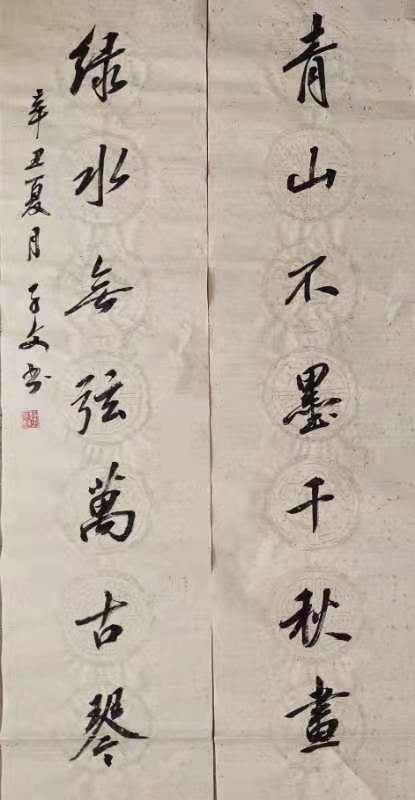 青山不墨千秋畫
绿水無弦萬古琴
辛丑夏月子文书